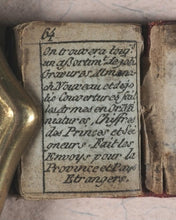 64
On trouvera touj.rs
un assortim.t de jolis
Gravures, Almana-
ch Nouveau et de jo-
lie Couvertures, &al
les Armes en Or & Mi-
niatures, Chiffres
des Princes et Sei-
gneurs. Fait les
Envoys pour la
Province et Pays
Etrangers.